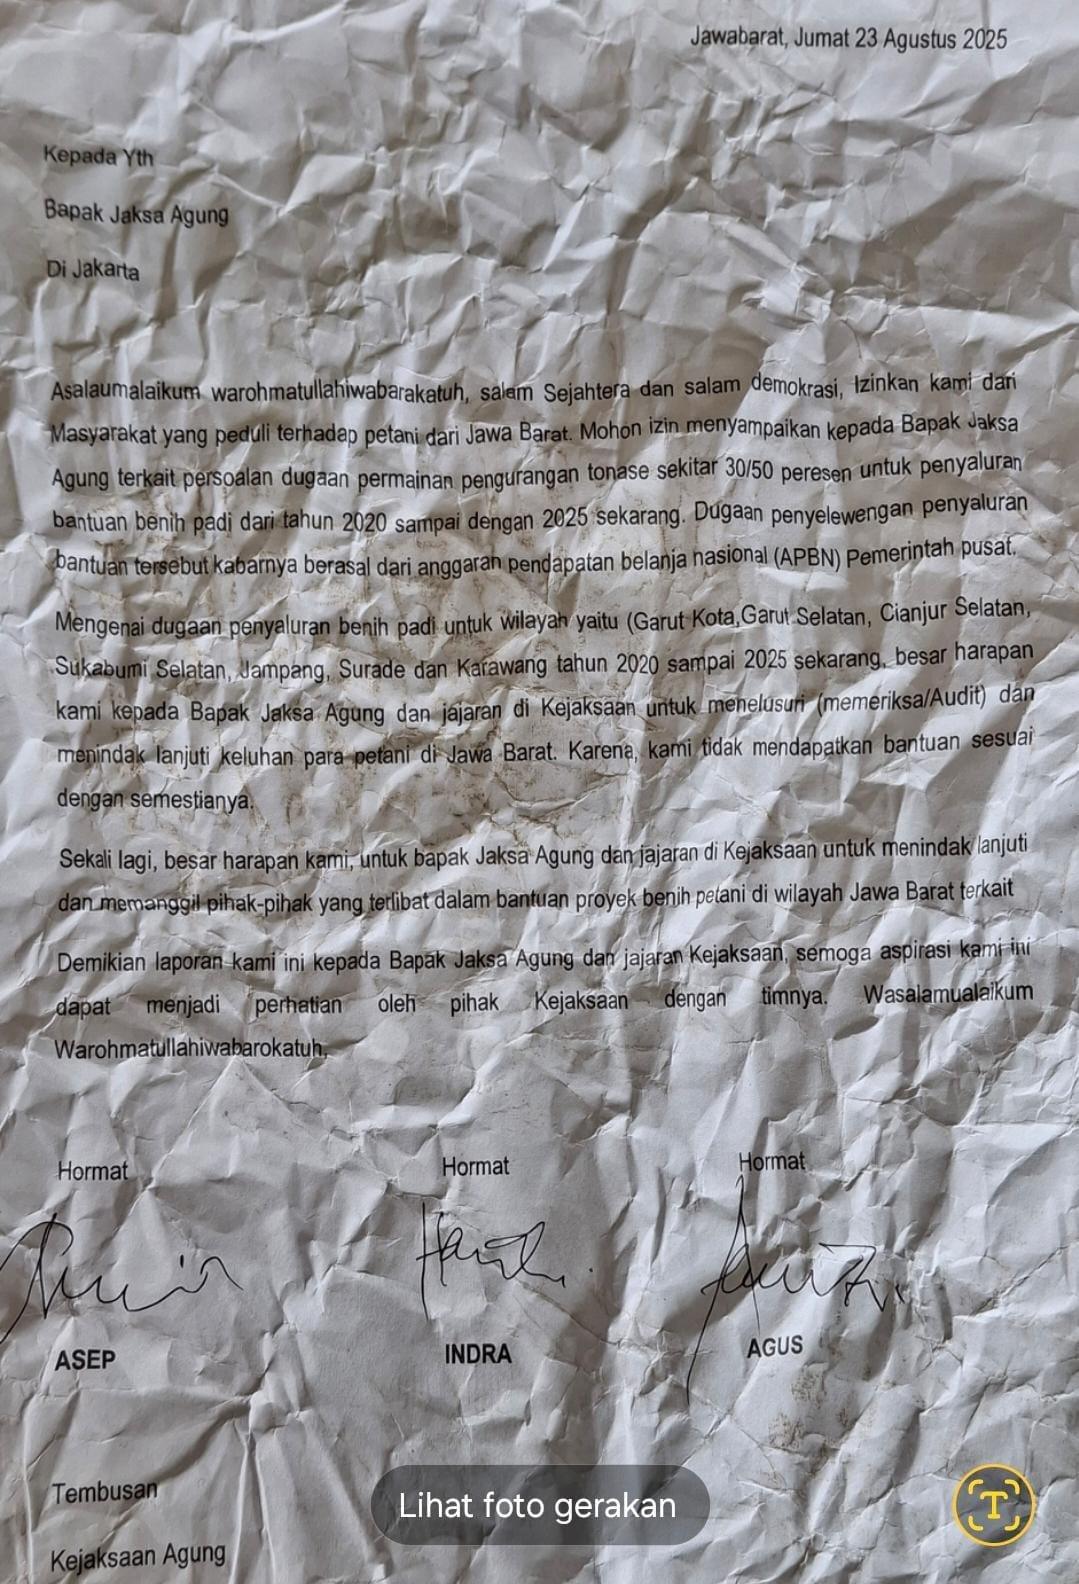 Jawabarat, Jumat 23 Agustus 2025
Kepada Yth
Bapak Jaksa Agung
Di Jakarta
Asalaumalaikum warohmatullahiwabarakatuh, salam Sejahtera dan salam demokrasi, Izinkan kami dari
Masyarakat yang peduli terhadap petani dari Jawa Barat. Mohon izin menyampaikan kepada Bapak Jaksa
Agung terkait persoalan dugaan permainan pengurangan tonase sekitar 30/50 peresen untuk penyaluran
bantuan benih padi dari tahun 2020 sampai dengan 2025 sekarang. Dugaan penyelewengan penyaluran
bantuan tersebut kabarnya berasal dari anggaran pendapatan belanja nasional (APBN) Pemerintah pusat.
Mengenai dugaan penyaluran benih padi untuk wilayah yaitu (Garut Kota,Garut Selatan, Cianjur Selatan,
Sukabumi Selatan, Jampang, Surade dan Karawang tahun 2020 sampai 2025 sekarang, besar harapan
kami kepada Bapak Jaksa Agung dan jajaran di Kejaksaan untuk menelusuri (memeriksa/Audit) dan
menindak lanjuti keluhan para petani di Jawa Barat. Karena, kami tidak mendapatkan bantuan sesuai
dengan semestianya.
Sekali lagi, besar harapan kami, untuk bapak Jaksa Agung dan jajaran di Kejaksaan untuk menindak lanjuti
dan memanggil pihak-pihak yang terlibat dalam bantuan proyek benih petani di wilayah Jawa Barat terkait
Demikian laporan kami ini kepada Bapak Jaksa Agung dan jajaran Kejaksaan, semoga aspirasi kami ini
dapat menjadi perhatian oleh pihak Kejaksaan dengan timnya. Wasalamualaikum
Warohmatullahiwabarokatuh,
Hormat Hormat Hormat
ASEP INDRA AGUS
Tembusan
Lihat foto gerakan
Kejaksaan Agung